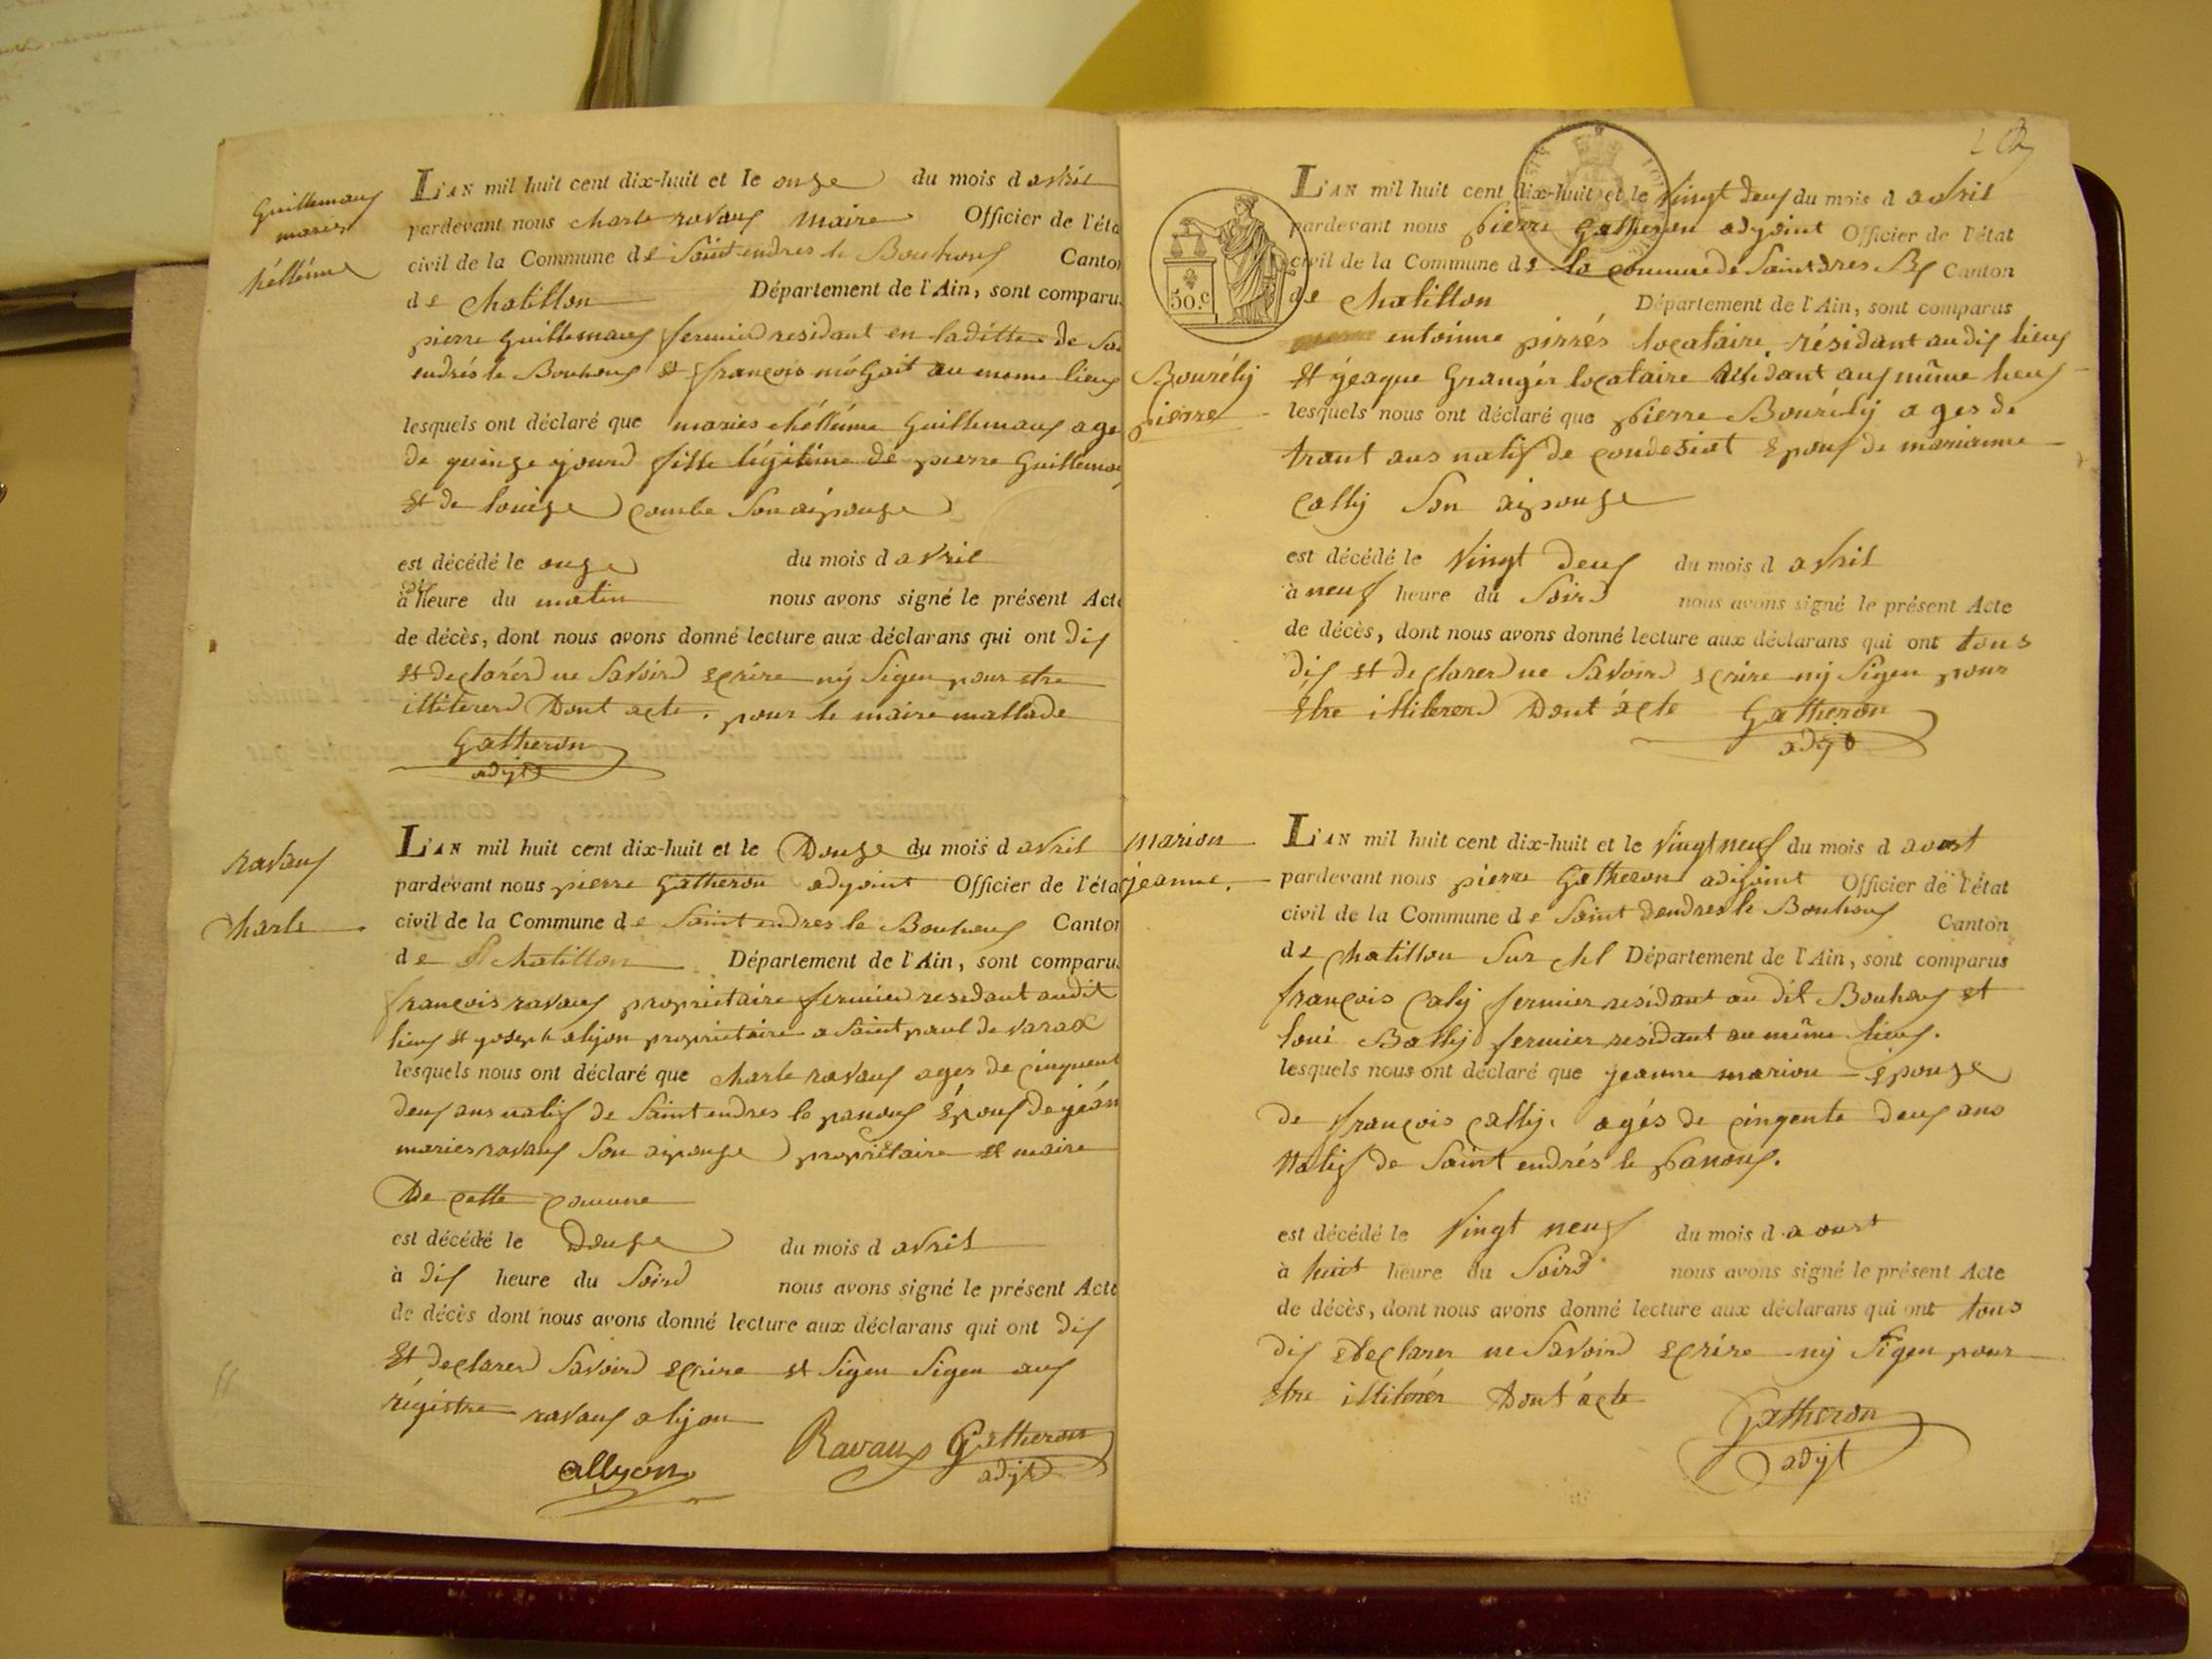 Guillemaux
maries
héllénne
L'AN mil huit cent dix-huit et le onze du mois d avril
pardevant nous charle ravaux maire Officier de l'éta
civil de la Commune de Saint endres le Bouhoux Canton
de Chatillon Département de l'Ain, sont comparus
pierre Guillemaux fermier residant en laditte de
endrés le Bouhoux et françois au meme lieux
lesquels ont déclaré que maries héllénne Guillemaux age
de quinze jourd fille légitime de pierre Guillemaux
et de louise Combe Son aipouse
est décédé le onze du mois d avril
à dix heure du matin nous avons signé le présent Acte
de décès, dont nous avons donné lecture aux déclarans qui ont dis
et declarér ne Savoird ecrire ny Signer pour etre
illiterer Dont acte. pour le maire mallade
Gatheron
adjt
ravaux
Charle
L'AN mil huit cent dix-huit et le Douze du mois d avril
pardevant nous pierre Gatheron adjoint Officier de l'éta
civil de la Commune de Saint endres le Bouhoux Canton
de Chatillon Département de l'Ain, sont comparus
françois ravaux proprietaire fermier residant audit
lieux et joseph alyon proprietaire a Saint paul de varax
lesquels nous ont déclaré que charle ravaux ages de cinquent
deux ans natif de Saint endres le panoux Époux de jéan
maries ravaux Son aipouse propriétaire et maire
De cette Commune
est décédé le Douze du mois d avril
à dix heure du Soird nous avons signé le présent Acte
de décès dont nous avons donné lecture aux déclarans qui ont dis
Et declarer Savoird ecrire et Signer Signer aux
régistre ravaux alyon
allyon Ravaux Gatheron
adjt
L'AN mil huit cent dix-huit et le Vingt deux du mois d avril
pardevant nous pierre Gatheron adjoint Officier de l'état
civil de la Commune de la Commune de Canton
de Chatillon Département de l'Ain, sont comparus
50.c
entoinne pirrés locataire résidant audis lieux
Bourély
pierre
et jeaque Grangér locataire résidant aux même lieux
lesquels nous ont déclaré que pierre Bourély ages de
trant ans natif de Condesiat Epoux de marianne
Cally Son aipouse
est décédé le Vingt Deux du mois d avril
à neuf heure du Soird nous avons signé le présent Acte
de décès, dont nous avons donné lecture aux déclarans qui ont tous
dis et declarer ne Savoird ecrire ny Signer pour
Etre illiterer Dont acte Gatheron
adjt
marion
jeanne.
L'AN mil huit cent dix-huit et le Vingt neuf du mois d aoust
pardevant nous pierre Gatheron adjoint Officier de l'état
civil de la Commune de Saint dendres le Bouhoux Canton
de Chatillon Sur Département de l'Ain, sont comparus
françois Caly fermier residant au dit Bouhoux et
loui Bally fermier residant au même lieux.
lesquels nous ont déclaré que jeanne marion epouse
de françois Cally. agés de cinqente deux ans
Natif de Saint endrés le panoux.
est décédé le Vingt neuf du mois d aoust
à huit heure du Soird nous avons signé le présent Acte
de décès, dont nous avons donné lecture aux déclarans qui ont tous
dis declarer ne Savoird ecrire ny Signer pour
etre illiterér Dont acte
Gatheron
adjt